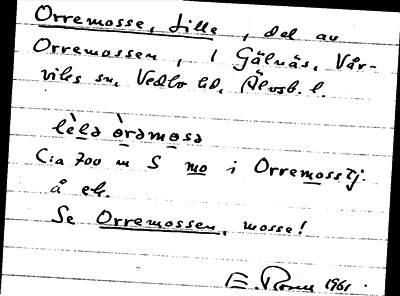 Orremosse, Lille, del av
Orremossen, i Gälnäs, Vår-
viks sn, Vedbo hd, Älvsb. l.
lèlə òrəmosə
C:a 700 m S mo i Orremosstj.
å ek.
Se Orremossen, mosse!
E. 1961